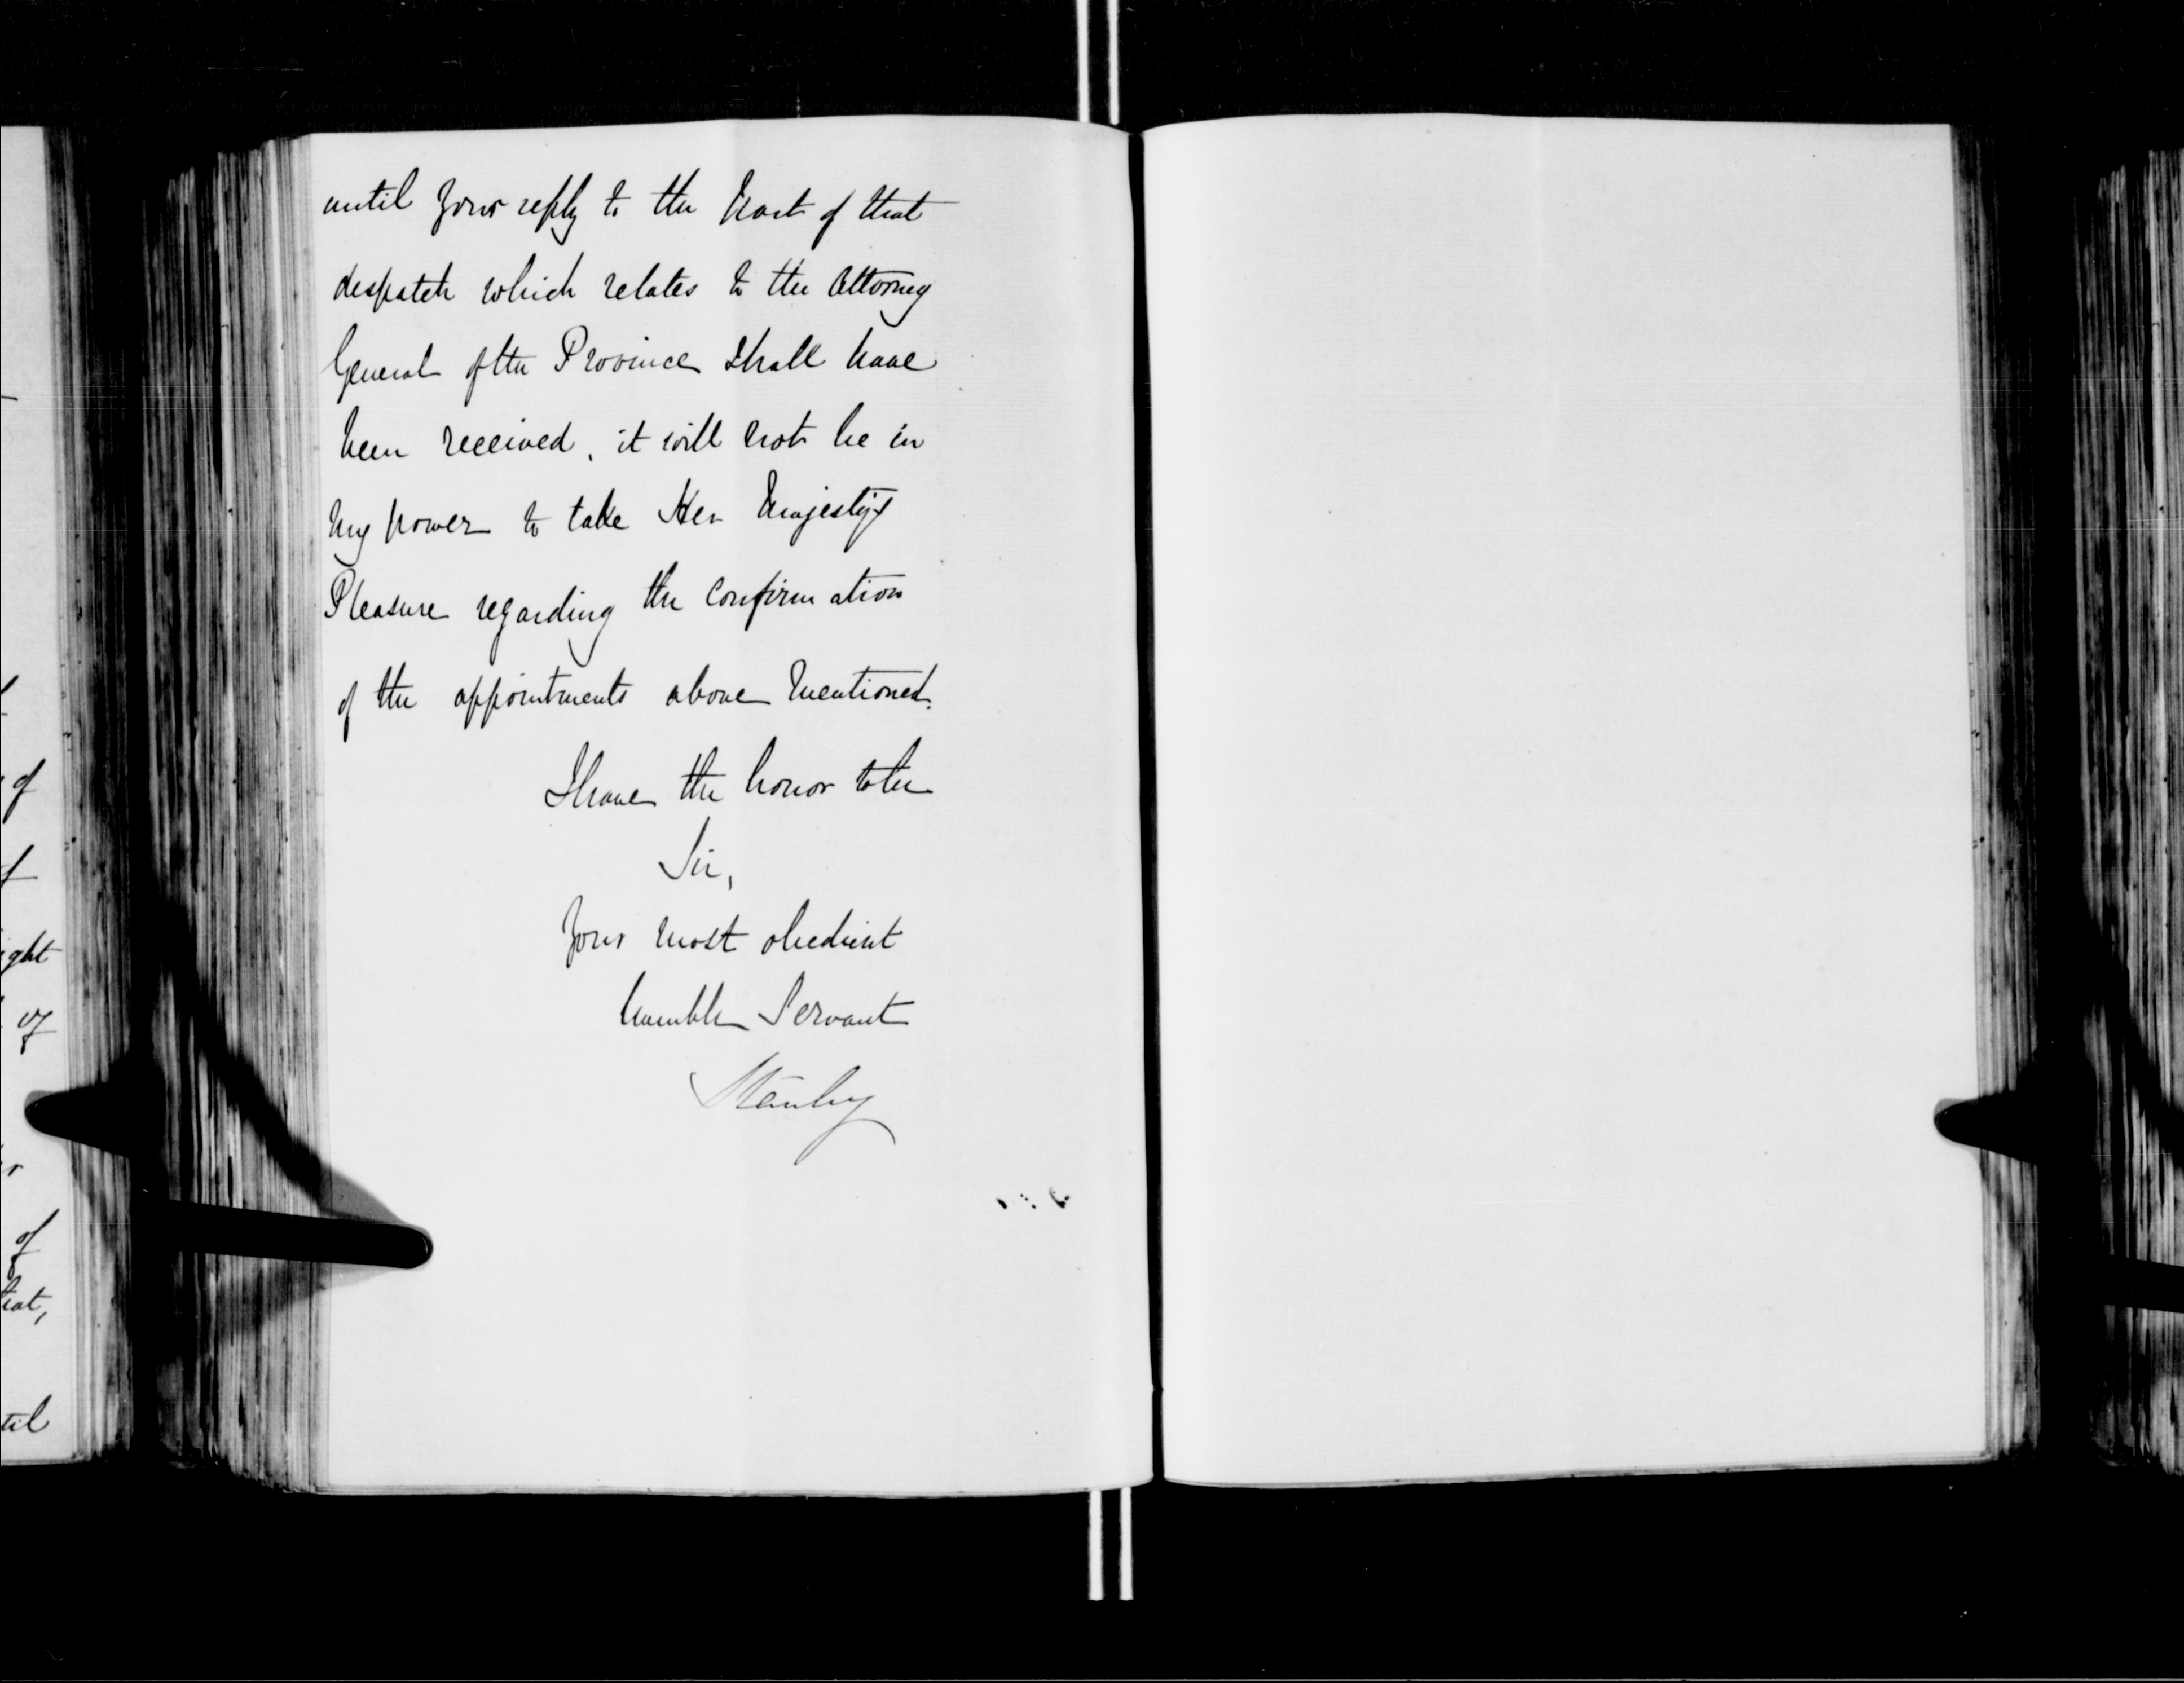 until your reply to the part of that
despatch which relates to the Attorney
General of the Province shall have
been received, it will not be in
my power to take Her Majesty's
Pleasure regarding the confirmation
of the appointments above mentioned.
I have the honor to be
Sir,
Your most obedient
humble Servant
Stanley
of
ight
of
of
hat,
til